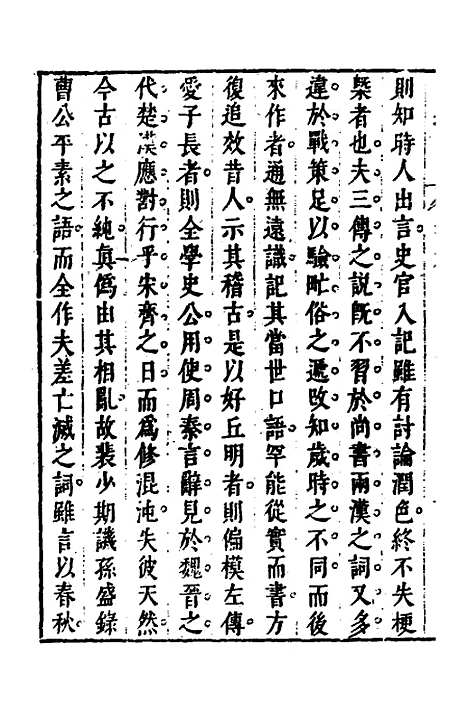 則知時人出言。史官入記。雖有討論潤色。終不失梗
槩者也。夫三傳之說。旣不習於尚書。兩漢之詞。又多
違於戰策。足以驗甿俗之遞改。知歲時之不同。而後
來作者。通無遠識。記其當世口語。罕能從實而書。方
復追效昔人。示其稽古。是以好丘明者。則偏模左傳。
愛子長者。則全學史公。用使周秦言辭。見於魏晉之
代。楚漢應對。行乎宋齊之日。而爲修混沌。失彼天然。
今古以之不純。眞僞由其相亂。故裴少期譏孫盛錄
曹公平素之語。而全作夫差亡滅之詞。雖言以春秋。